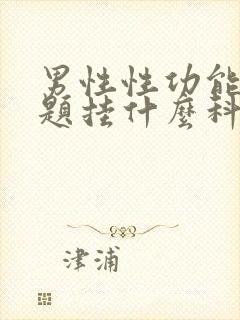 男性性功能
題挂什麼科
津浦